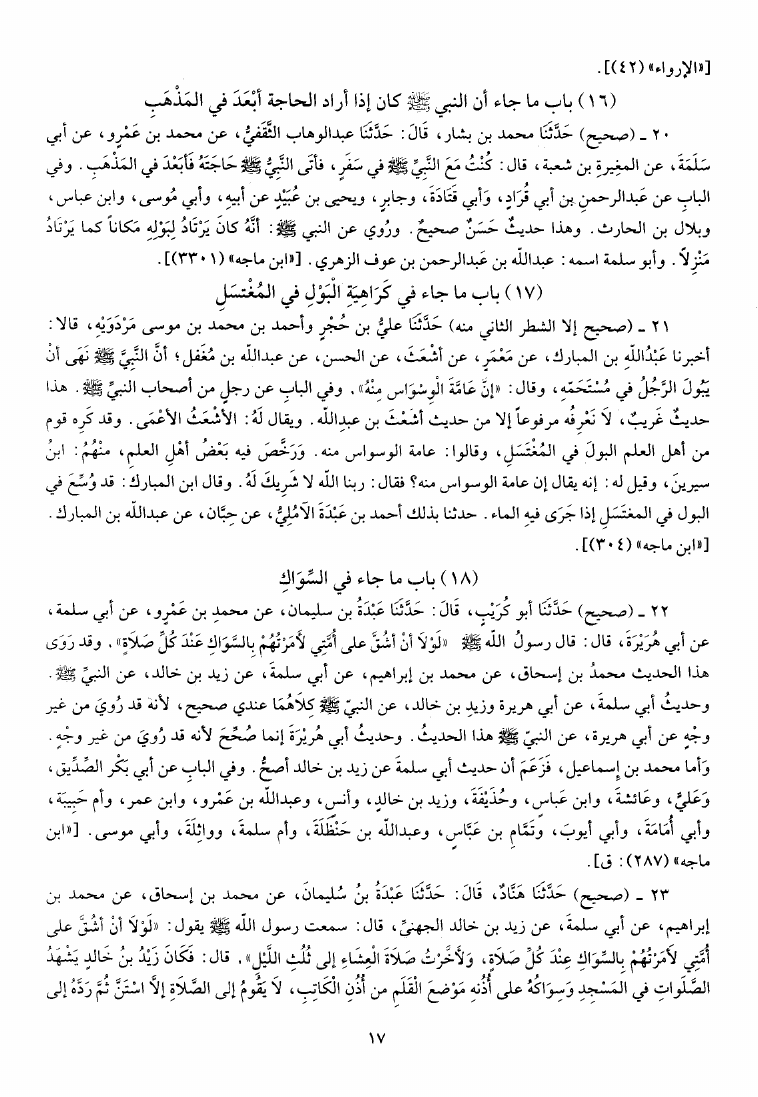 [«الإرواء» (٤٢)].
(١٦) باب ما جاء أن النبي ﷺ كان إذا أراد الحاجة أَبْعَدَ في المَذْهَبِ
٢٠ ـ (صحيح) حَدَّثَنَا محمد بن بشار، قَالَ: حَدَّثَنَا عبدالوهاب الثَّقَفيُّ، عن محمد بن عَمْرو، عن أبي
سَلَمَةَ، عن المغيرةِ بن شعبة، قال: كُنْتُ مَعَ النَّبِيِّ ﷺ في سَفَرٍ، فأتَى النَّبِيُّ ﷺ حَاجَتَهُ فَأَبْعَدَ في المَذْهَبِ. وفي
البابِ عن عَبدالرحمنِ بن أبي قُرَادٍ، وَأبي قَتَادَةَ، وجابرٍ، ويحيى بن عُبَيْدٍ عن أبيهِ، وأبي مُوسى، وابن عباس،
وبلال بن الحارث. وهذا حديثٌ حَسَنٌ صحيحٌ. ورُوي عن النبي ﷺ: أنَّهُ كانَ يَرْتَادُ لِبَوْلِهِ مَكاناً كما يَرْتَادُ
مَنْزِلاً. وأبو سلمة اسمه: عبدالله بن عَبدالرحمن بن عوف الزهري. [«ابن ماجه» (٣٣٠١)].
(١٧) باب ما جاء في كَرَاهِيَةِ الْبَوْلِ في المُغْتسَلِ
٢١ ـ (صحيح إلا الشطر الثاني منه) حَدَّثَنَا عليُّ بن حُجْرٍ وأحمد بن محمد بن موسى مَرْدَوَيْهِ، قالا:
أخبرنا عَبْدُاللهِ بن المبارك، عن مَعْمَرٍ، عن أَشْعَثَ، عن الحسن، عن عبدالله بن مُغَفل؛ أنَّ النَّبيَّ ﷺ نَهَى أنْ
يَبُولَ الرَّجُلُ في مُسْتَحَمِّهِ، وقال: «إنَّ عَامَّةَ الْوِسْوَاسِ مِنْهُ». وفي الباب عن رجلٍ من أصحاب النبيِّ ﷺ. هذا
حديثٌ غَريبٌ، لَا نَعْرِفُه مرفوعاً إلا من حديث أشعْثَ بن عبدِالله. ويقال لَهُ: الأشْعَثُ الأعْمَى. وقد كَرِه قوم
من أهل العلم البولَ في المُغْتَسَلِ، وقالوا: عامة الوسواس منه. وَرَخَّصَ فيه بَعْضُ أهْلِ العلم، منْهُمُ: ابنُ
سيرينَ، وقيل له: إنه يقال إن عامة الوسواس منه؟ فقال: ربنا الله لا شَرِيكَ لَهُ. وقال ابن المبارك: قد وُسِّعَ في
البول في المغتَسَلِ إذا جَرَى فيهِ الماء. حدثنا بذلك أحمد بن عَبْدَةَ الآمُلِيُّ، عن حِبَّان، عن عبدالله بن المبارك.
[«ابن ماجه» (٣٠٤)].
(١٨) باب ما جاء في السِّوَاكِ
٢٢ ـ (صحيح) حَدَّثَنَا أبو كُرَيْبٍ، قَالَ: حَدَّثَنَا عَبْدَةُ بن سليمان، عن محمدِ بن عَمْرو، عن أبي سلمة،
عن أبي هُرَيْرَةَ، قال: قال رسولُ الله ﷺ «لَوْلَا أنْ أشُقَّ على أُمَّتِي لأمَرْتُهُمْ بالسِّوَاكِ عَنْدَ كُلِّ صَلَاةٍ». وقد رَوَى
هذا الحديث محمدُ بن إسحاق، عن محمد بن إبراهيم، عن أبي سلمةَ، عن زيد بن خالد، عن النبيِّ ﷺ.
وحديثُ أبي سلمةَ، عن أبي هريرة وزيدِ بن خالد، عن النبيّ ﷺ كِلَاهُمَا عندي صحيح، لأنه قد رُويَ من غير
وجْهٍ عن أبي هريرة، عن النبيّ ﷺ هذا الحديثُ. وحديثُ أبي هُريْرَةَ إنما صُحِّحَ لأنه قد رُويَ من غير وجْهٍ.
وَأما محمد بن إسماعيل، فَزَعَمَ أن حديث أبي سلمةَ عن زيد بن خالد أصحُّ. وفي البابِ عن أبي بَكْر الصِّدِّيق،
وَعَليٍّ، وعَائشةَ، وابن عَباسٍ، وحُذَيْفَةَ، وزيد بن خالدٍ، وأنسٍ، وعبدالله بن عَمْرو، وابن عمر، وأم حَبِيبَة،
وأبي أُمَامَةَ، وأبي أيوبَ، وتَمَّامِ بن عَبَّاس، وعبدالله بن حَنْظَلَةَ، وأم سلمةَ، وواثِلَةَ، وأبي موسى. [«ابن
ماجه» (٢٨٧): ق].
٢٣ ـ (صحيح) حَدَّثَنَا هَنَّادٌ، قَالَ: حَدَّثَنَا عَبْدَةُ بنُ سُليمانَ، عن محمد بن إسحاق، عن محمد بن
إبراهيم، عن أبي سلمةَ، عن زيد بن خالد الجهنيِّ، قال: سمعت رسول الله ﷺ يقول: «لَوْلَا أنْ أشُقَّ على
أُمَّتِي لأمَرْتُهُمْ بالسِّوَاكِ عِنْدَ كُلِّ صَلَاةٍ، وَلأخَّرْتُ صَلَاةَ الْعِشَاءِ إلى ثُلُثِ اللَّيْلِ». قال: فَكَانَ زَيْدُ بنُ خَالدٍ يَشْهَدُ
الصَّلَواتِ في المَسْجِدِ وَسِوَاكُهُ على أُذُنِهِ مَوْضعَ الْقَلَمِ من أُذُنِ الْكَاتِبِ، لَا يَقُومُ إلى الصَّلَاةِ إلاَّ اسْتَنَّ ثُمَّ رَدَّهُ إلى
١٧